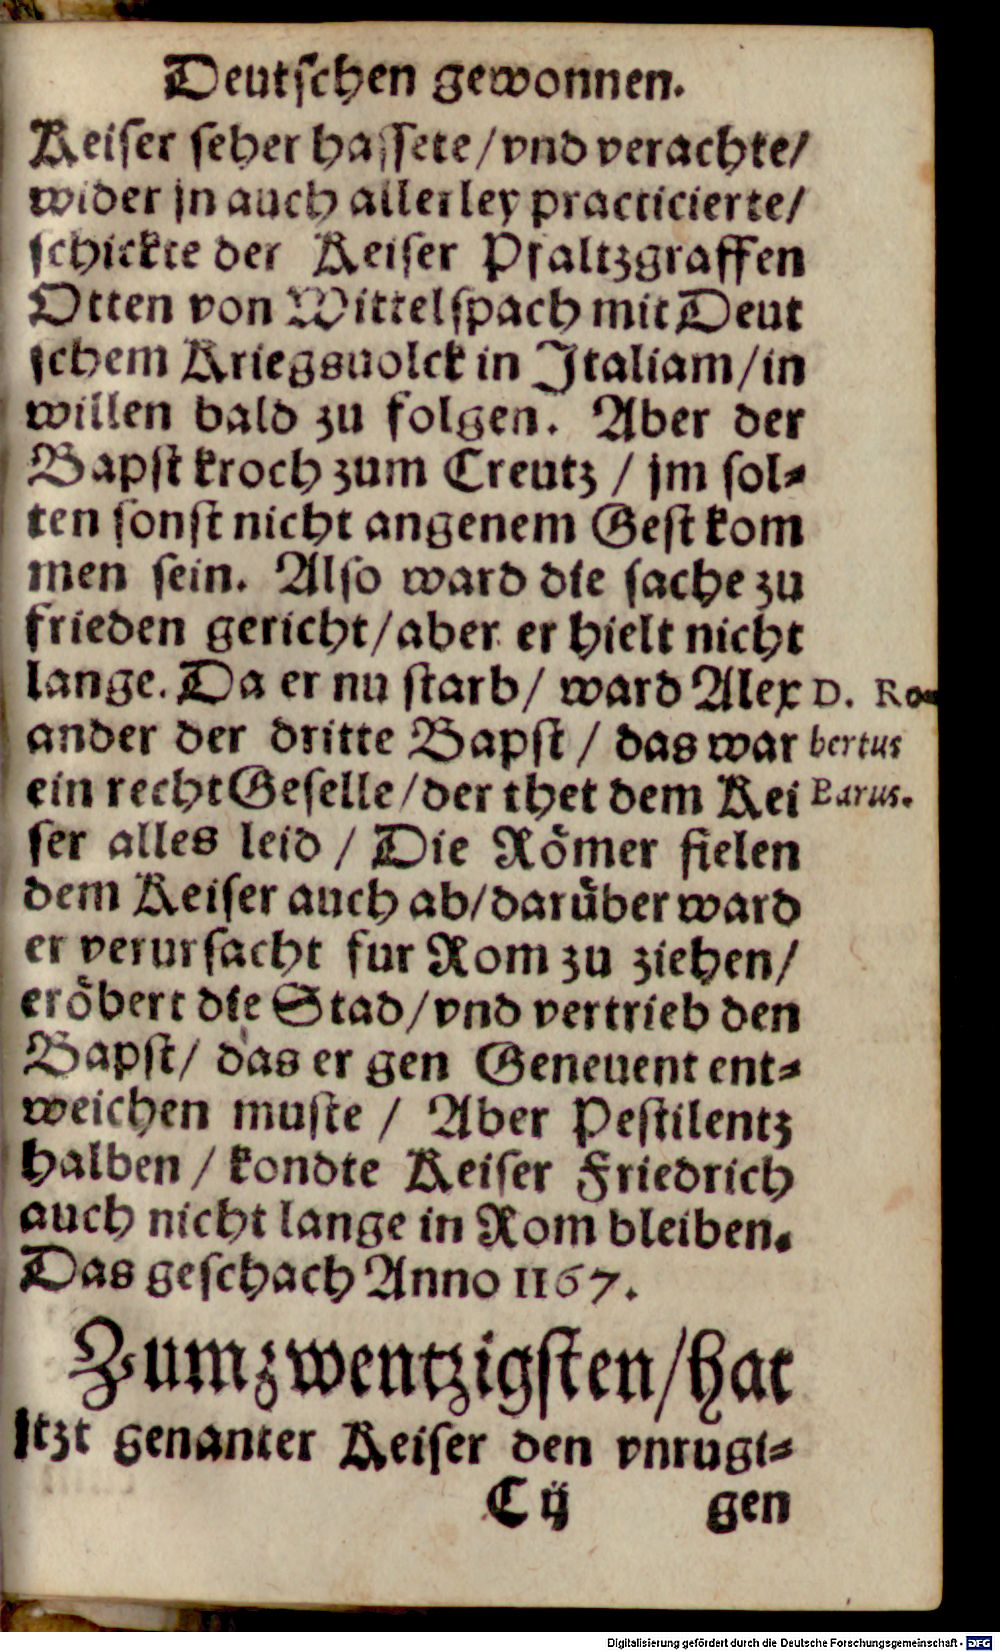 Deutschen gewonnen.
Keiser seher hassete/vnd verachte/
wider jn auch allerley practicierte/
schickte der Keiser Pfaltzgraffen
Otten von Wittelspach mit Deut
schem Kriegsuolck in Italiam/in
willen bald zu folgen. Aber der
Bapst kroch zum Creutz / jm sol-
ten sonst nicht angenem Gest kom
men sein. Also ward die sache zu
frieden gericht/aber er hielt nicht
lange. Da er nu starb/ ward Alex
ander der dritte Bapst / das war
ein recht Geselle/der thet dem Kei
ser alles leid / Die Römer fielen
dem Keiser auch ab/darüber ward
er verursacht fur Rom zu ziehen/
eröbert die Stad/vnd vertrieb den
Bapst/ das er gen Geneuent ent-
weichen muste / Aber Pestilentz
halben / kondte Keiser Friedrich
auch nicht lange in Rom bleiben.
Das geschach Anno 1167.
D. Ro-
bertus
Barus.
Zum zwentzigsten/hat
jtzt genanter Keiser den vnrugi-
C ij gen
Digitalisierung gefördert durch die Deutsche Forschungsgemeinschaft - DFG